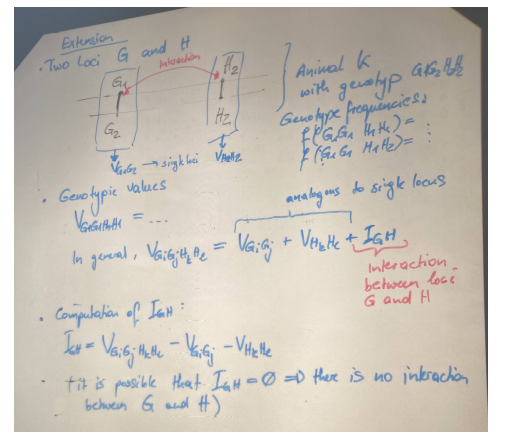 Extension
• Two Loci G and H
Interaction
G1
G2
H2
H2
Animal K
with genotyp G1G2H2H2
Genotype frequencies:
f(G1G1 H1H1) =
f(G1G1 H1H2) = ⋮
VG1G2 → single loci
VH2H2
• Genotypic values
VG1G1H1H1 = ...
analogous to single locus
In general, VGiGjHkHe = VGiGj + VHkHe + IGH
Interaction
between loci
G and H
• Computation of IGH :
IGH = VGiGjHkHe - VGiGj - VHkHe
it is possible that IGH = 0 => there is no interaction
between G and H)